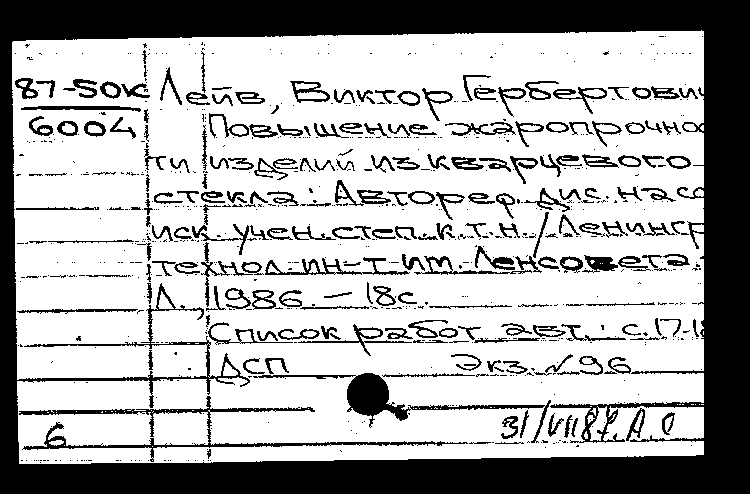 87-50к Лейв, Виктор Гербертович
6004 Повышение жаропрочнос
ти изделий из кварцевого
стекла: Автореф. дис. на со
иск. учен. степ. к.т.н. / Ленингр
технол. ин-т им. Ленсовета.-
Л., 1986. - 18с.
Список работ авт.: с.17-18
ДСП Экз. № 96
6 31/VII87. А.О